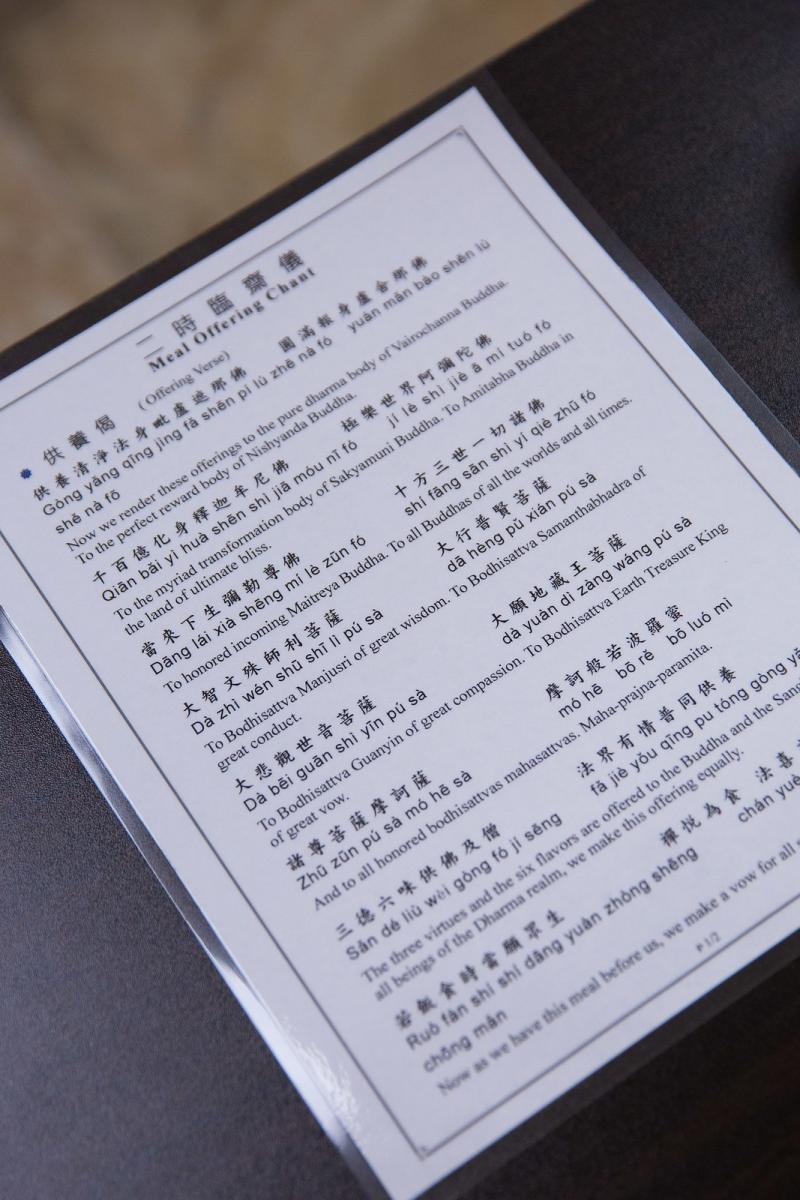 二時臨齋儀
Meal Offering Chant
供養偈 (Offering Verse)
供養清淨法身毗盧遮那佛 圓滿報身盧舍那佛
Gòng yǎng qīng jìng fǎ shēn pí lú zhē nà fó yuán mǎn bào shēn lú
shě nà fó
Now we render these offerings to the pure dharma body of Vairochanna Buddha.
To the perfect reward body of Nishyanda Buddha.
千百億化身釋迦牟尼佛 極樂世界阿彌陀佛
Qiān bǎi yì huà shēn shì jiā móu ní fó jí lè shì jiè ā mí tuó fó
To the myriad transformation body of Sakyamuni Buddha. To Amitabha Buddha in
the land of ultimate bliss.
當來下生彌勒尊佛 十方三世一切諸佛
Dāng lái xià shēng mí lè zūn fó shí fāng sān shì yí qiè zhū fó
To honored incoming Maitreya Buddha. To all Buddhas of all the worlds and all times.
大智文殊師利菩薩 大行普賢菩薩
Dà zhì wén shū shī lì pú sà dà hèng pǔ xián pú sà
To Bodhisattva Manjusri of great wisdom. To Bodhisattva Samanthabhadra of
great conduct.
大悲觀世音菩薩 大願地藏王菩薩
Dà bēi guān shì yīn pú sà dà yuàn dì zàng wáng pú sà
To Bodhisattva Guanyin of great compassion. To Bodhisattva Earth Treasure King
of great vow.
諸尊菩薩摩訶薩 摩訶般若波羅蜜
Zhū zūn pú sà mó hē sà mó hē bō rě bō luó mì
And to all honored bodhisattvas mahasattvas. Maha-prajna-paramita.
三德六味供佛及僧 法界有情普同供養
Sān dé liù wèi gòng fó jí sēng fǎ jiè yǒu qīng pu tóng gòng
The three virtues and the six flavors are offered to the Buddha and the
all beings of the Dharma realm, we make this offering equally.
若飯食時當願眾生 禪悅為食 法喜
Ruò fàn shí shí dāng yuàn zhòng shēng chán
chōng mǎn
Now as we have this meal before us, we make a vow for all
P 1/2